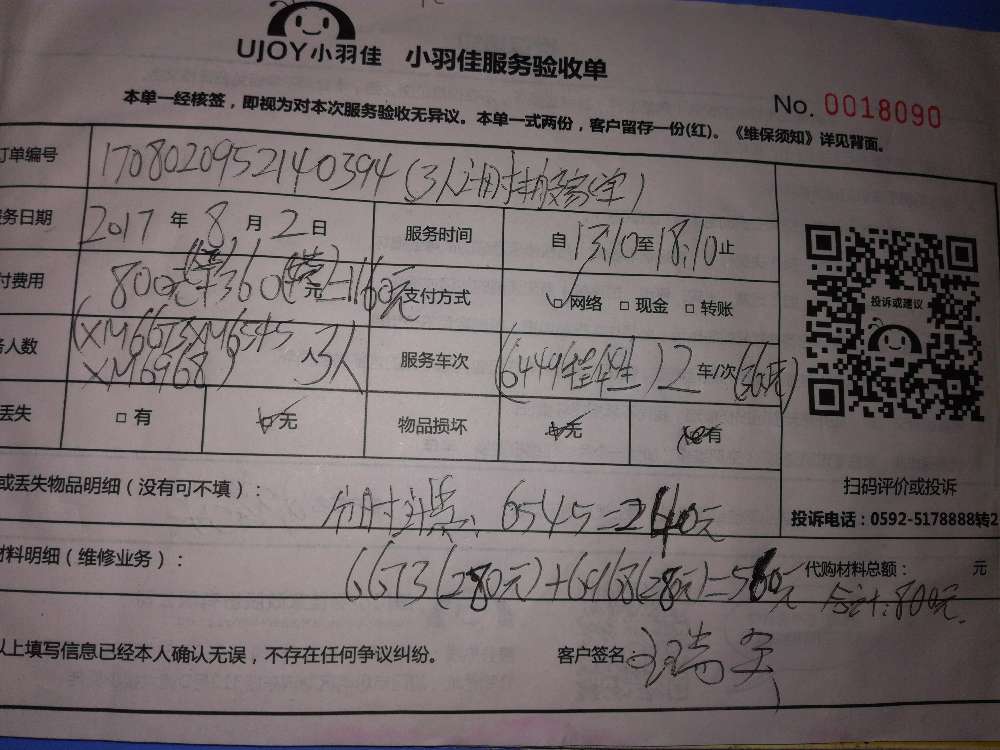 UJOY小羽佳 小羽佳服务验收单
No. 0018090
本单一经核签，即视为对本次服务验收无异议。本单一式两份，客户留存一份(红)。《维保须知》详见背面。
订单编号 1708020952140394
服务日期 2017 年 8 月 2 日 服务时间 自 13:10 至 18:10 止
付费用 800元 360 元 =1160元 支付方式 □网络 □现金 □转账
务人数 (XM6673 XM6545 XM6968) 3人 服务车次 (6449 ) 2 车/次
丢失 □有 □无 物品损坏 □无 □有
投诉或建议
扫码评价或投诉
投诉电话：0592-5178888转2
或丢失物品明细（没有可不填）：
6545=240元
材料明细（维修业务）：
6673(280元)+6968(280元)=560元
代购材料总额： 元
合计:800元
以上填写信息已经本人确认无误，不存在任何争议纠纷。 客户签名